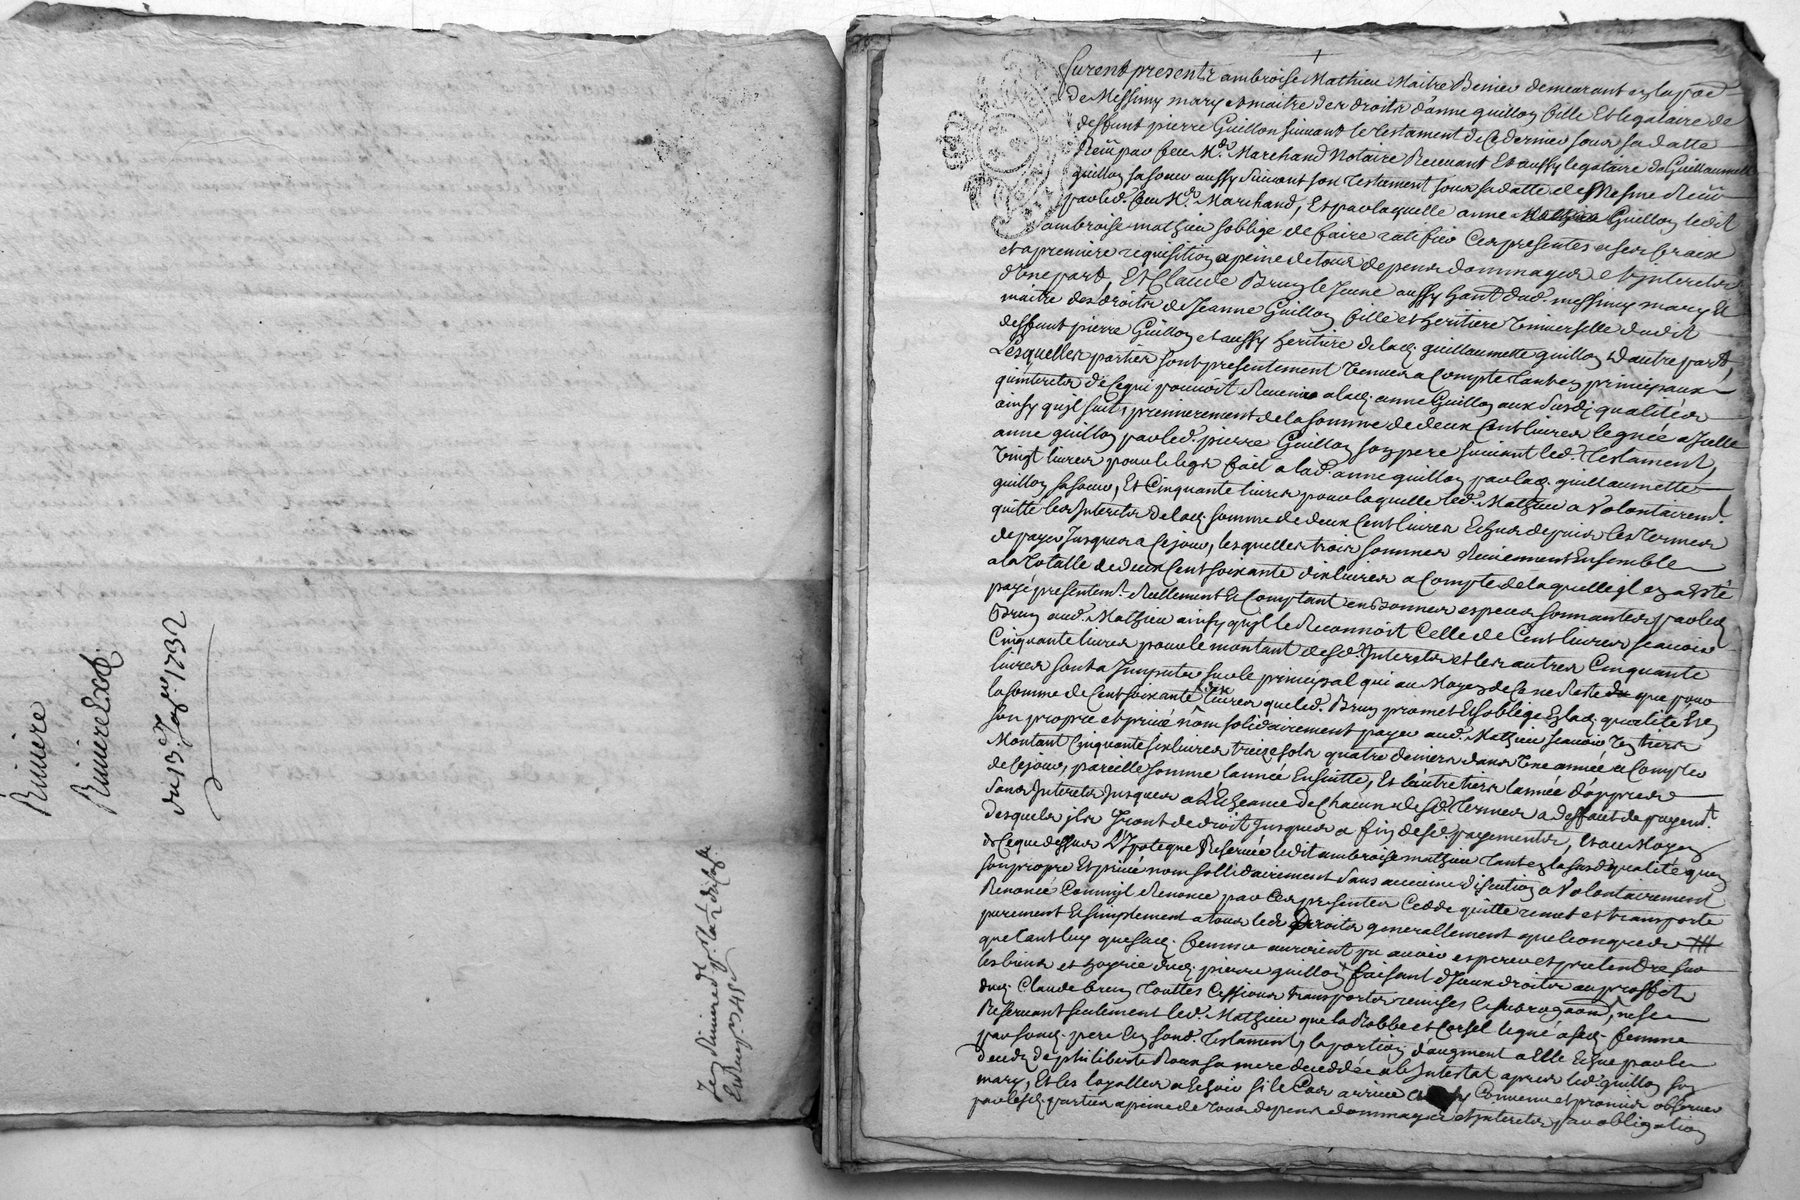 Rivière
Rivière Exp.
du 13e Janv. 1732
furent presents ambroise Mathieu Maitre Benier demeurant en la paroe
de Messimy mary et maitre des droits d'anne guillon fille Et legataire de
deffunt pierre Guillon suivant le testament de ce dernier sous sa datte
Receu par feu Me. Marchand Notaire Recevant Et aussy legataire de Guillaumette
guillon sa soeur aussy suivant son testament sous sa datte de Mesme Receu
par led. feu Me. Marchand, Et par laquelle anne Guillon ledit
ambroise mathieu soblige de faire ratifier Ces presentes a ses fraix
et a premiere requisition a peine de tous depens dommages et interests
d'Une part, Et Claude Brun le Jeune aussy hant dud. messimy mary Et
maitre des droits de Jeanne Guillon fille et heritiere Universelle dudit
deffunt pierre Guillon et aussy heritiere de lad. guillaumette guillon d'autre part,
Lesquelles parties sont presentement Venues a Compte tant en principaux
qu'interets de Ce qui pouvoit Revenir a lad. anne Guillon aux susd. qualités
ainsy qu'jl suit, premierement de la somme de deux Cent livres leguée a Jcelle
anne guillon par led. pierre Guillon son pere suivant led. testament,
Vingt livres pour le legs fait a lad. anne guillon par lad. guillaumette
guillon sa soeur, Et Cinquante livres pour laquelle led. Mathieu a Volontairemt.
quitte les Interets de lad. somme de deux Cent livres Echus depuis les termes
de payer Jusques a Ce jour, lesquelles trois sommes Reviennent Ensemble
a la totalle de deux Cent soixante dix livres a Compte de laquelle jl en a Esté
payé presentemt. Reellement Et Comptant en bonnes especes sonnantes par led.
Brun aud. Mathieu ainsy qu'jl le Reconnoit Celle de Cent livres scavoir
Cinquante livres pour le montant desd. Interets et les autres Cinquante
livres sont a Jmputer sur le principal qui au Moyen de Ce ne Reste que pour
la somme de Cent soixante dix livres que led. Brun promet Et soblige En lad. qualité Et en
son propre et privé nom solidairement payer aud. Mathieu scavoir Un tiers
Montant Cinquante six livres treize sols quatre deniers dans Une année a Compter
de Ce jour, pareille somme l'année Ensuitte, Et l'autre tiers l'année d'apprès
sans Interets Jusques a L'Echeance de Chacun desd. termes a deffaut de payemt.
desquels jls Jront de droit Jusques a fin desd. payements, Et au Moyen
de Ce que dessus L'Ipoteque Reservée ledit ambroise mathieu tant en la susd. qualité qu'en
son propre Et privé nom sollidairement sans aucune discution a Volontairement
Renoncé Comm'jl Renonce par Ces presentes Cedde quitte remet et transporte
purement Et simplement a tous les droits generallement quelconques
que tant luy que sad. femme auroient pu avoir esperer et pretendre sur
les biens et hoyrie dud. pierre guillon faisant d'Jceux droits au proffit
dud. Claude brun touttes Cessions transports remises Et subrogaons, ne se
Reservant seulement led. Mathieu que la Robbe et Corset legué a sad. femme
par sond. pere En sond. testament, la portion d'augment a Elle Echue par le
deces de philiberte Roux sa mere decedée ab Intestat apres led. guillon son
mary, Et les loyalles a Echoir si le Cas arrive Convenu et promis observer
par lesd. parties a peine de tous depens dommages et interets par obligation